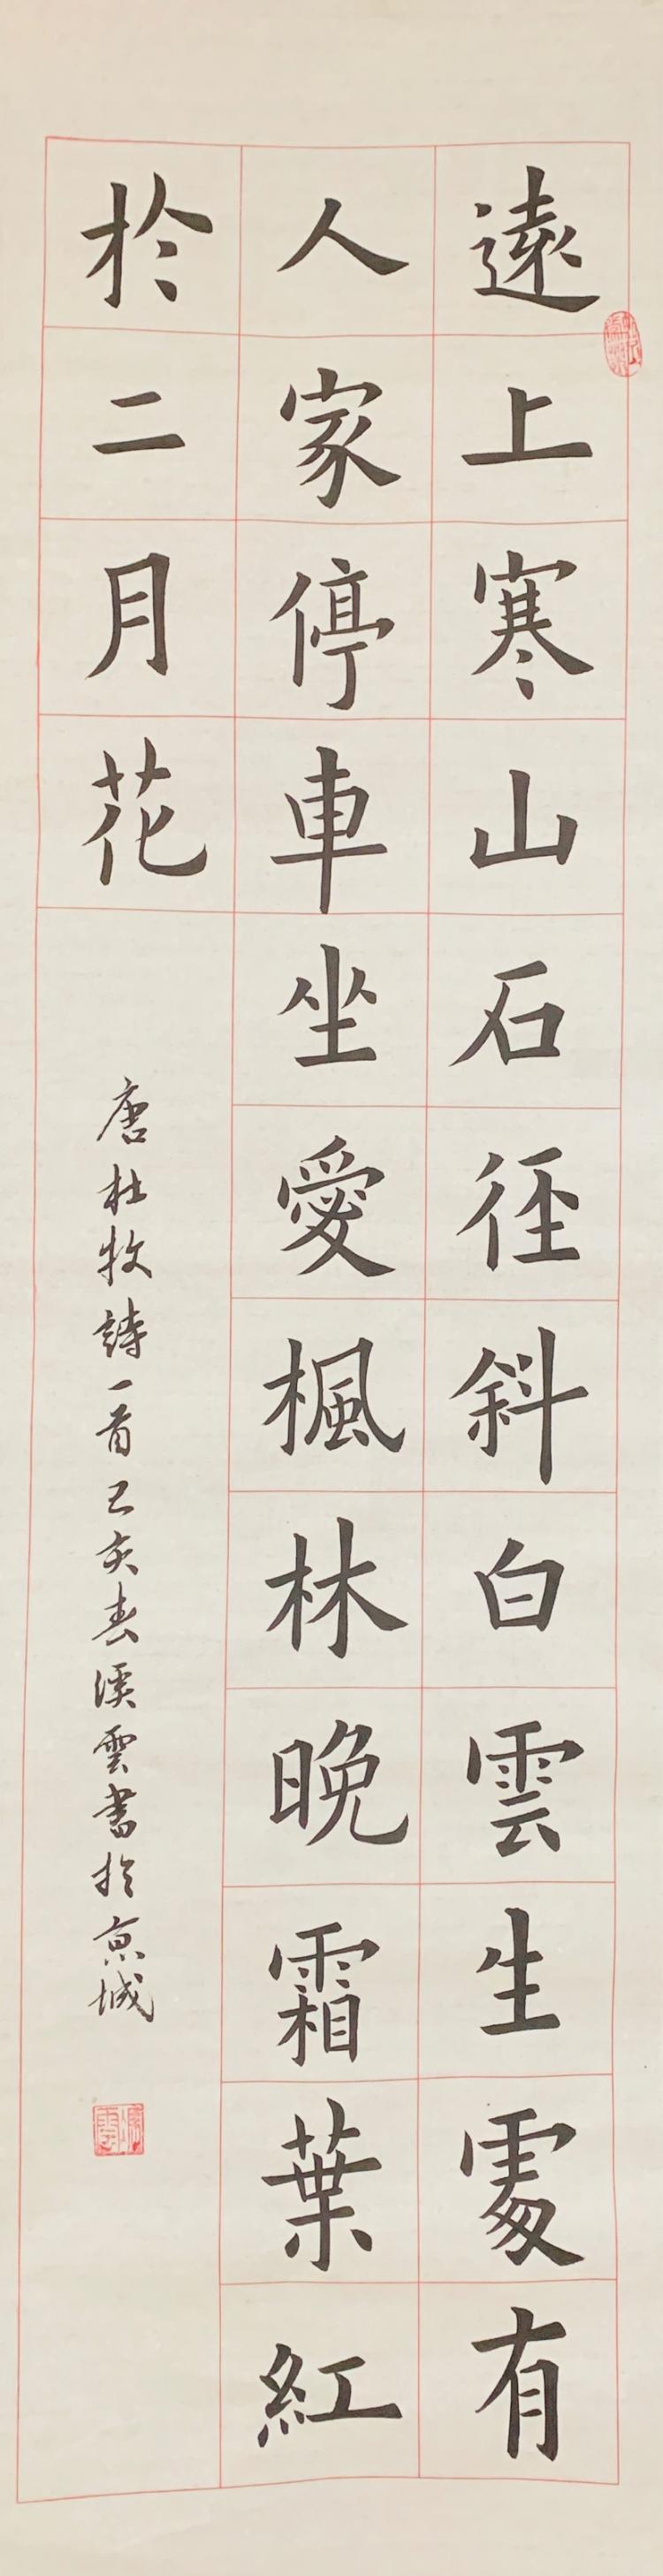 遠上寒山石徑斜白雲生處有
人家停車坐愛楓林晚霜葉紅
於二月花
唐杜牧詩一首己亥春溪雲書於京城